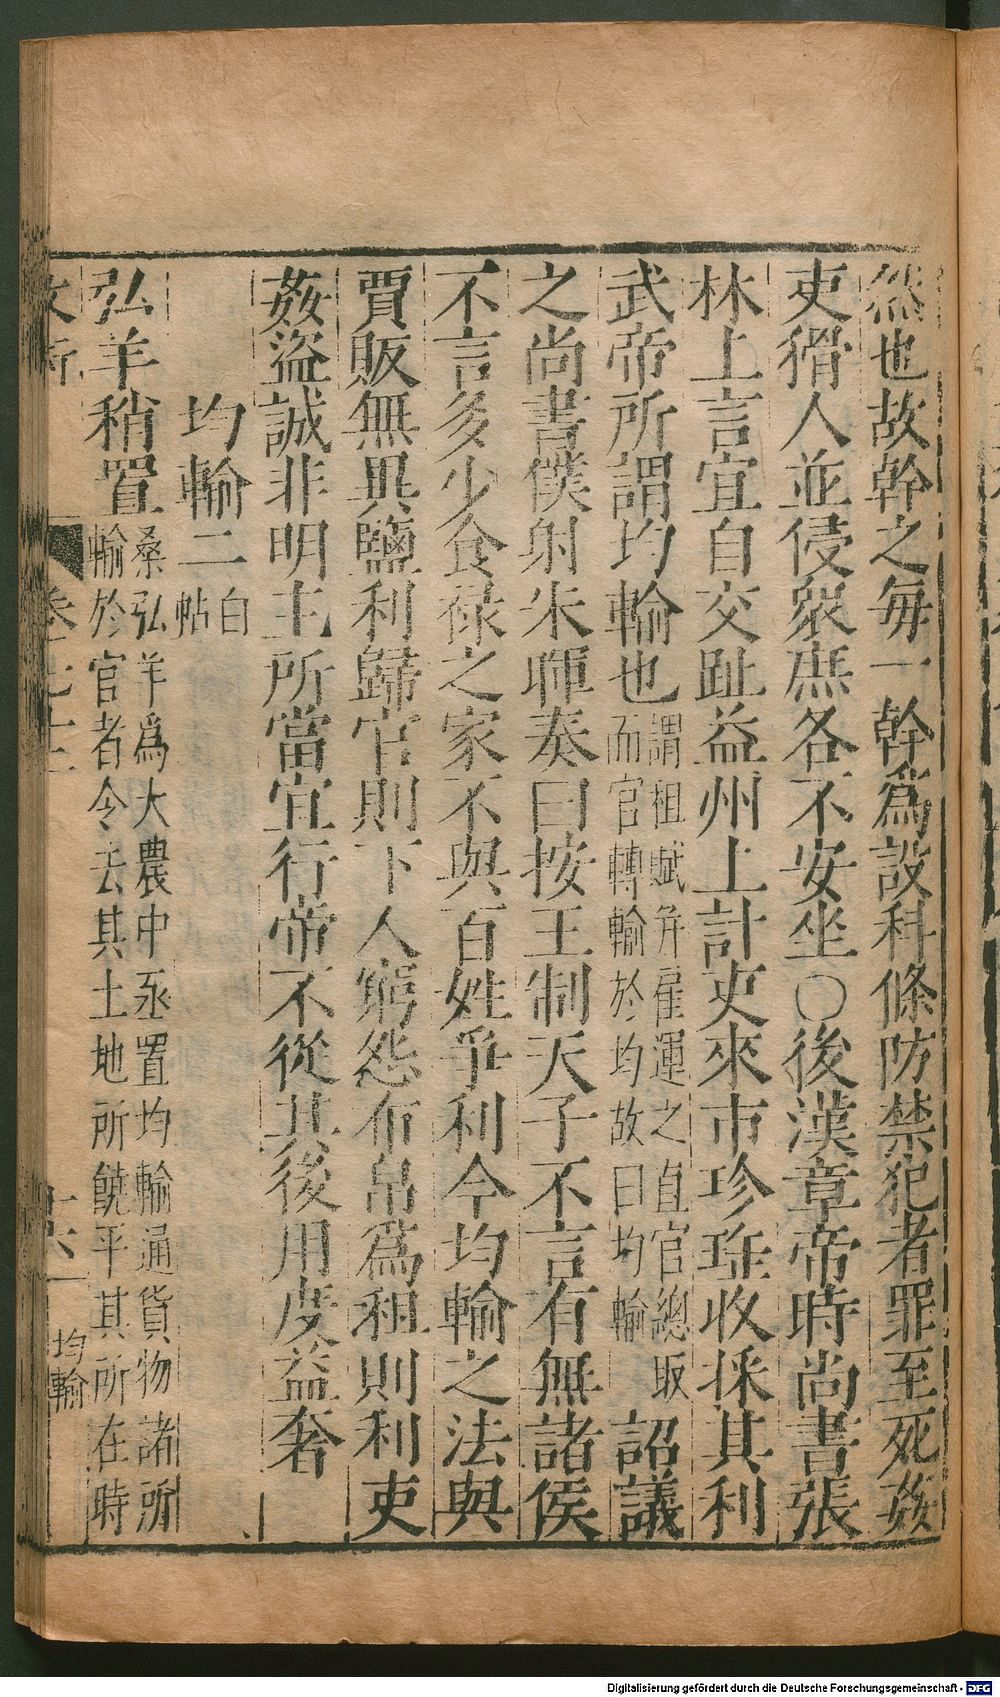 然也故幹之每一幹為設科條防禁犯者罪至死姦
吏猾人並侵衆庶各不安坐〇後漢章帝時尚書張
林上言宜自交趾益州上計吏來市珍珤收採其利
武帝所謂均輸也謂租賦并雇運之直官總取而官轉輸於均故曰均輸詔議
之尚書僕射朱暉奏曰按王制天子不言有無諸侯
不言多少食祿之家不與百姓爭利今均輸之法與
賈販無異鹽利歸官則下人窮怨布帛為租則利吏
姦盜誠非明主所當宜行帝不從其後用度益奢
均輸二白帖
弘羊稍置桑弘羊為大農中丞置均輸通貨物諸所輸於官者令去其土地所饒平其所在時
卷七十 十六 均輸
Digitalisierung gefördert durch die Deutsche Forschungsgemeinschaft - DFG